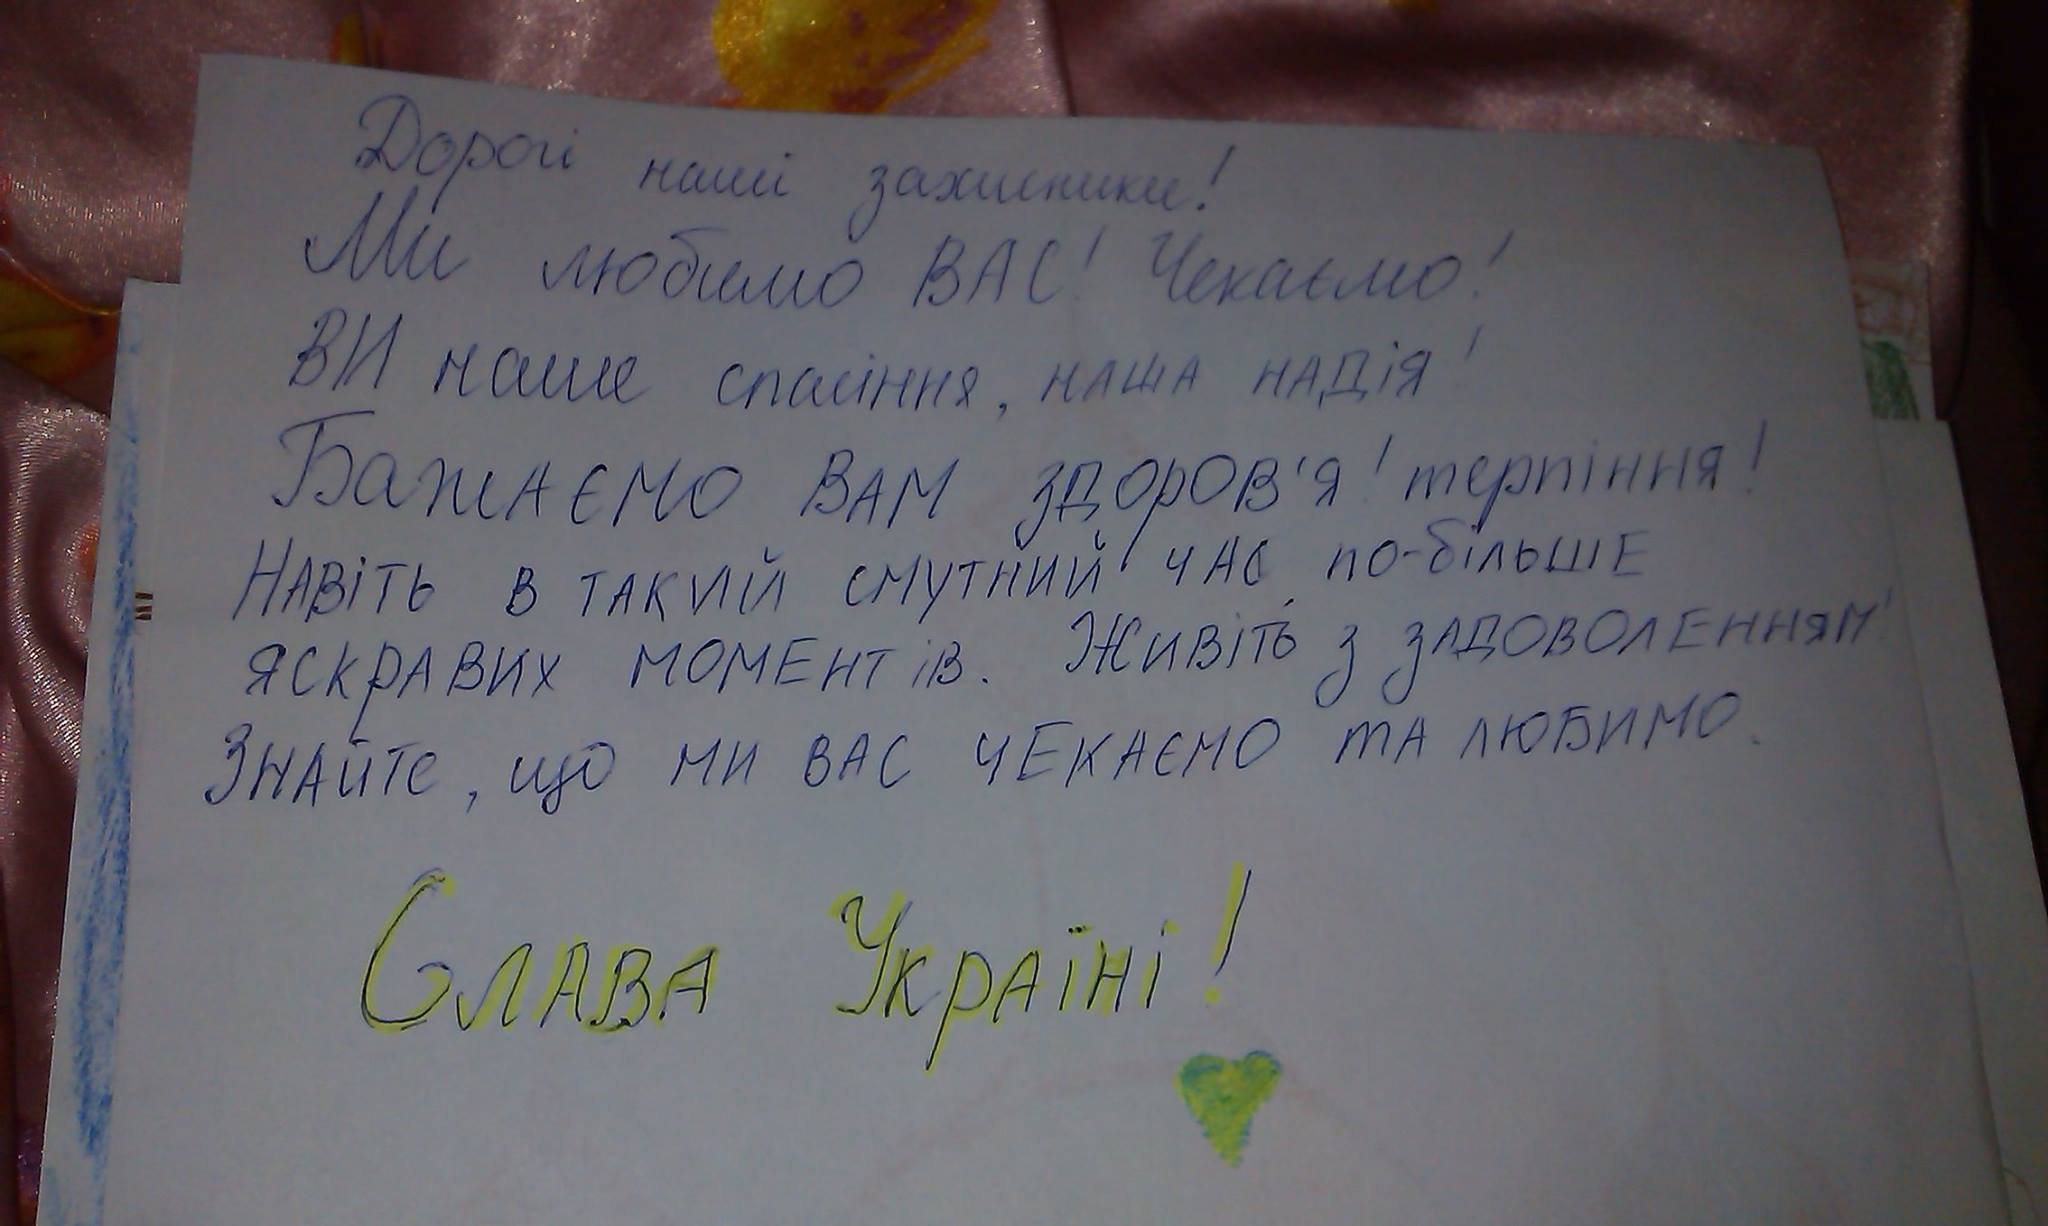 Дорогі наші захисники!
Ми любимо ВАС! Чекаємо!
ВИ наше спасіння, наша надія!
Бажаємо ВАМ здоров'я! терпіння!
Навіть в такий смутний час по-більше
яскравих моментів. Живіть з задоволенням!
Знайте, що ми вас чекаємо та любимо.
Слава Україні!